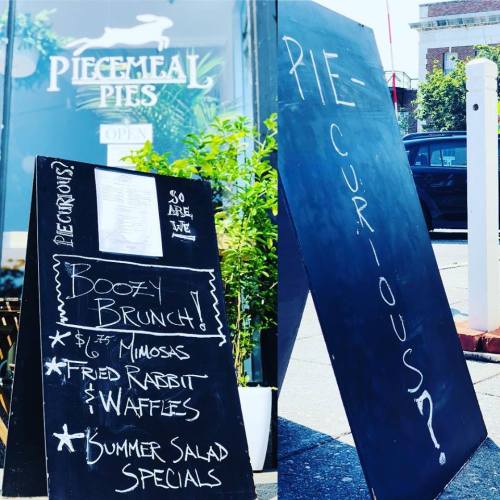 PIECEMEAL
PIES
OPEN
PIECURIOUS?
SO
ARE
WE
BOOZY
BRUNCH!
$6.75 MIMOSAS
FRIED RABBIT
& WAFFLES
SUMMER SALAD
SPECIALS
PIE-
CURIOUS?